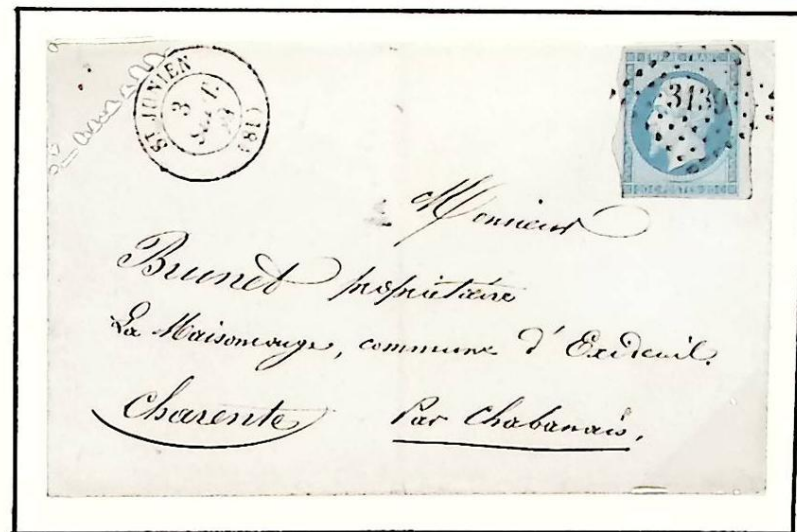 ST JUNIEN
3
SEPT.
(18)
3139
Monsieur
Brunet propriétaire
La Maisonrouge, commune d'Exideuil.
Charente Par Chabanais.